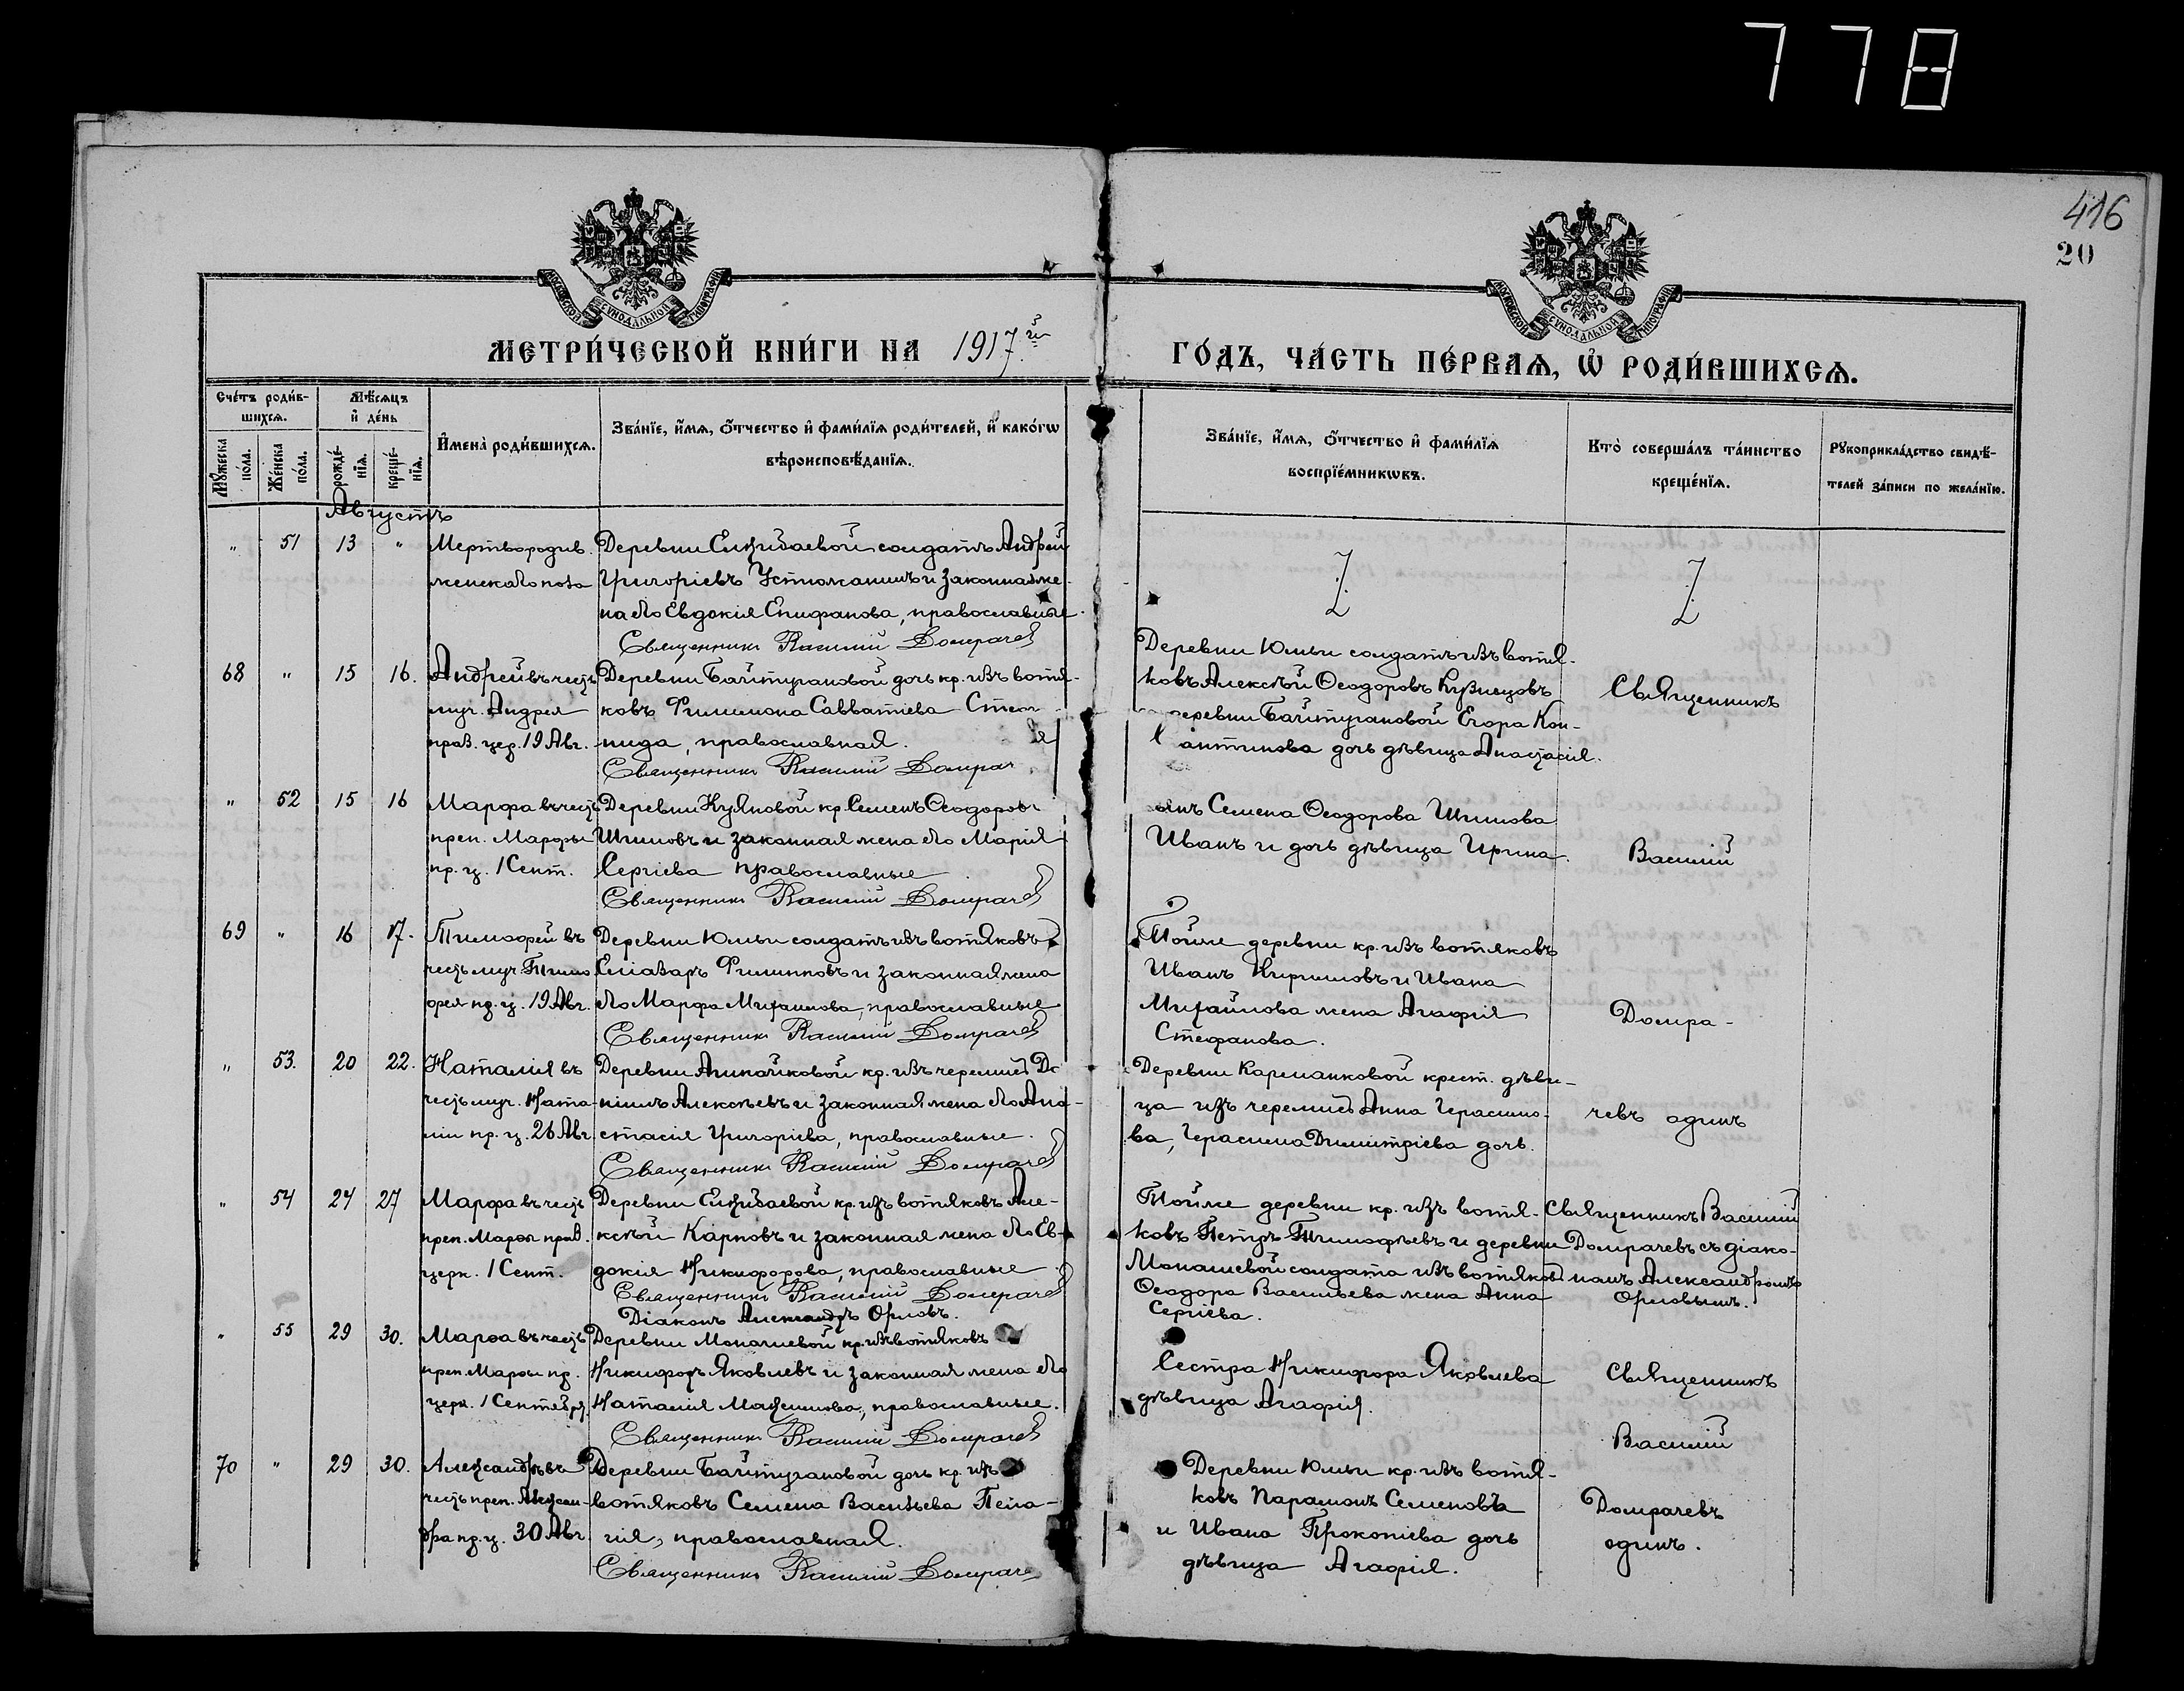 778
416
20
МОСКОВСКОЙ СУНОДАЛЬНОЙ ТИПОГРАФІИ
МОСКОВСКОЙ СУНОДАЛЬНОЙ ТИПОГРАФІИ
МЕТРИ́ЧЕСКОЙ КНИ́ГИ НА 1917й
ГО́ДЪ, ЧА́СТЬ ПЕ́РВАѦ, Ѡ РОДИ́ВШИХСѦ.
Сче́тъ роди́в-
шихсѧ.
Мꙋ́жеска
по́ла.
Же́нска
по́ла.
Мѣ́сѧцъ
и҆ де́нь
рожде́-
нїѧ.
креще́-
нїѧ.
И҆мена̀ роди́вшихсѧ.
Зва́нїе, и҆́мѧ, ѻ҆́тчество и҆ фами́лїѧ роди́телей, и҆ како́гѡ
вѣроисповѣ́данїѧ.
Зва́нїе, и҆́мѧ, ѻ҆́тчество и҆ фами́лїѧ
воспрїе́мникѡвъ.
Кто̀ соверша́лъ та́инство
креще́нїѧ.
Рꙋкоприкла́дство свидѣ́-
телей за́писи по жела́нїю.
Августъ
" 51 13 "
Мертворожд.
женскаго пола
Деревни солдатъ Андрей
Григорьевъ и законная же-
на его Евдокія Епифанова, православные.
Священникъ Василій Домрачев
68 " 15 16.
Андрей въ честь
муч. Андрея
праз. цер. 19 Авг.
Деревни Байтугановой дочь кр. изъ вотя-
ковъ Филимона Савватіева Степ
нида, православная.
Священникъ Василій Домрач
Деревни Юмьи солдатъ изъ вотя-
ковъ Алексѣй Ѳеодоровъ Кузнецовъ
деревни Байтугановой Егора Кон-
антинова дочь дѣвица Анастасія.
Священникъ
" 52 15 16
Марѳа въ честь
преп. Марѳы
пр. ц. 1 Сент.
Деревни Куяновой кр. Семенъ Ѳеодоров
Шиловъ и законная жена его Марія
Сергіева православные
Священникъ Василій Домрачев
Семена Ѳеодорова Шилова
Иванъ и дочь дѣвица Ирина.
Василій
69 " 16 17.
Тимоѳей въ
честь муч. Тимо
ѳея пр. ц. 19 Авг.
Деревни Юмьи солдатъ изъ вотяковъ
Еліазаръ Филипповъ и законная жена
его Марѳа Михаилова, православные
Священникъ Василій Домрачев
Тойме деревни кр. изъ вотяковъ
Иванъ Кирилловъ и Ивана
Михайлова жена Агафія
Стефанова.
Домра-
" 53. 20 22.
Наталія въ
честь муч. Ната-
ліи пр. ц. 26 Авг.
Деревни кр. изъ черемисъ Да
ніилъ Алексѣевъ и законная жена его Ана-
стасія Григоріева, православные.
Священникъ Василій Домрачев
Деревни Карманковой крест. дѣви-
ца изъ черемисъ Анна Герасимо-
ва, Герасима Димитріева дочь.
чевъ одинъ
" 54 24 27
Марѳа въ честь
преп. Марѳы праз.
церк. 1 Сент.
Деревни кр. изъ вотяковъ Але-
ксѣй Карповъ и законная жена его Ев-
докія Никифорова, православные.
Священникъ Василій Домрачев
Діаконъ Александръ Орловъ.
Тойме деревни кр. изъ вотя-
ковъ Петръ Тимоѳѣевъ и деревни
Монашевой солдата изъ вотяков
Ѳеодора Васильева жена Анна
Сергіева.
Священникъ Василій
Домрачевъ съ діако-
номъ Александромъ
Орловымъ.
" 55 29 30.
Марѳа въ честь
преп. Марѳы пр.
церк. 1 Сентября
Деревни Монашевой кр. изъ вотяковъ
Никифоръ Яковлевъ и законная жена его
Наталія Максимова, православные.
Священникъ Василій Домрачев
Сестра Никифора Яковлева
дѣвица Агафія.
Священникъ
Василій
70 " 29 30.
Александръ въ
честь преп. Алексан-
дра пр. ц. 30 Авг.
Деревни Байтугановой дочь кр. изъ
вотяковъ Семена Васильева Пела-
гія, православная.
Священникъ Василій Домраче
Деревни Юмьи кр. изъ вотя-
ковъ Парамонъ Семеновъ
и Ивана Прокопіева дочь
дѣвица Агафія.
Домрачевъ
одинъ.